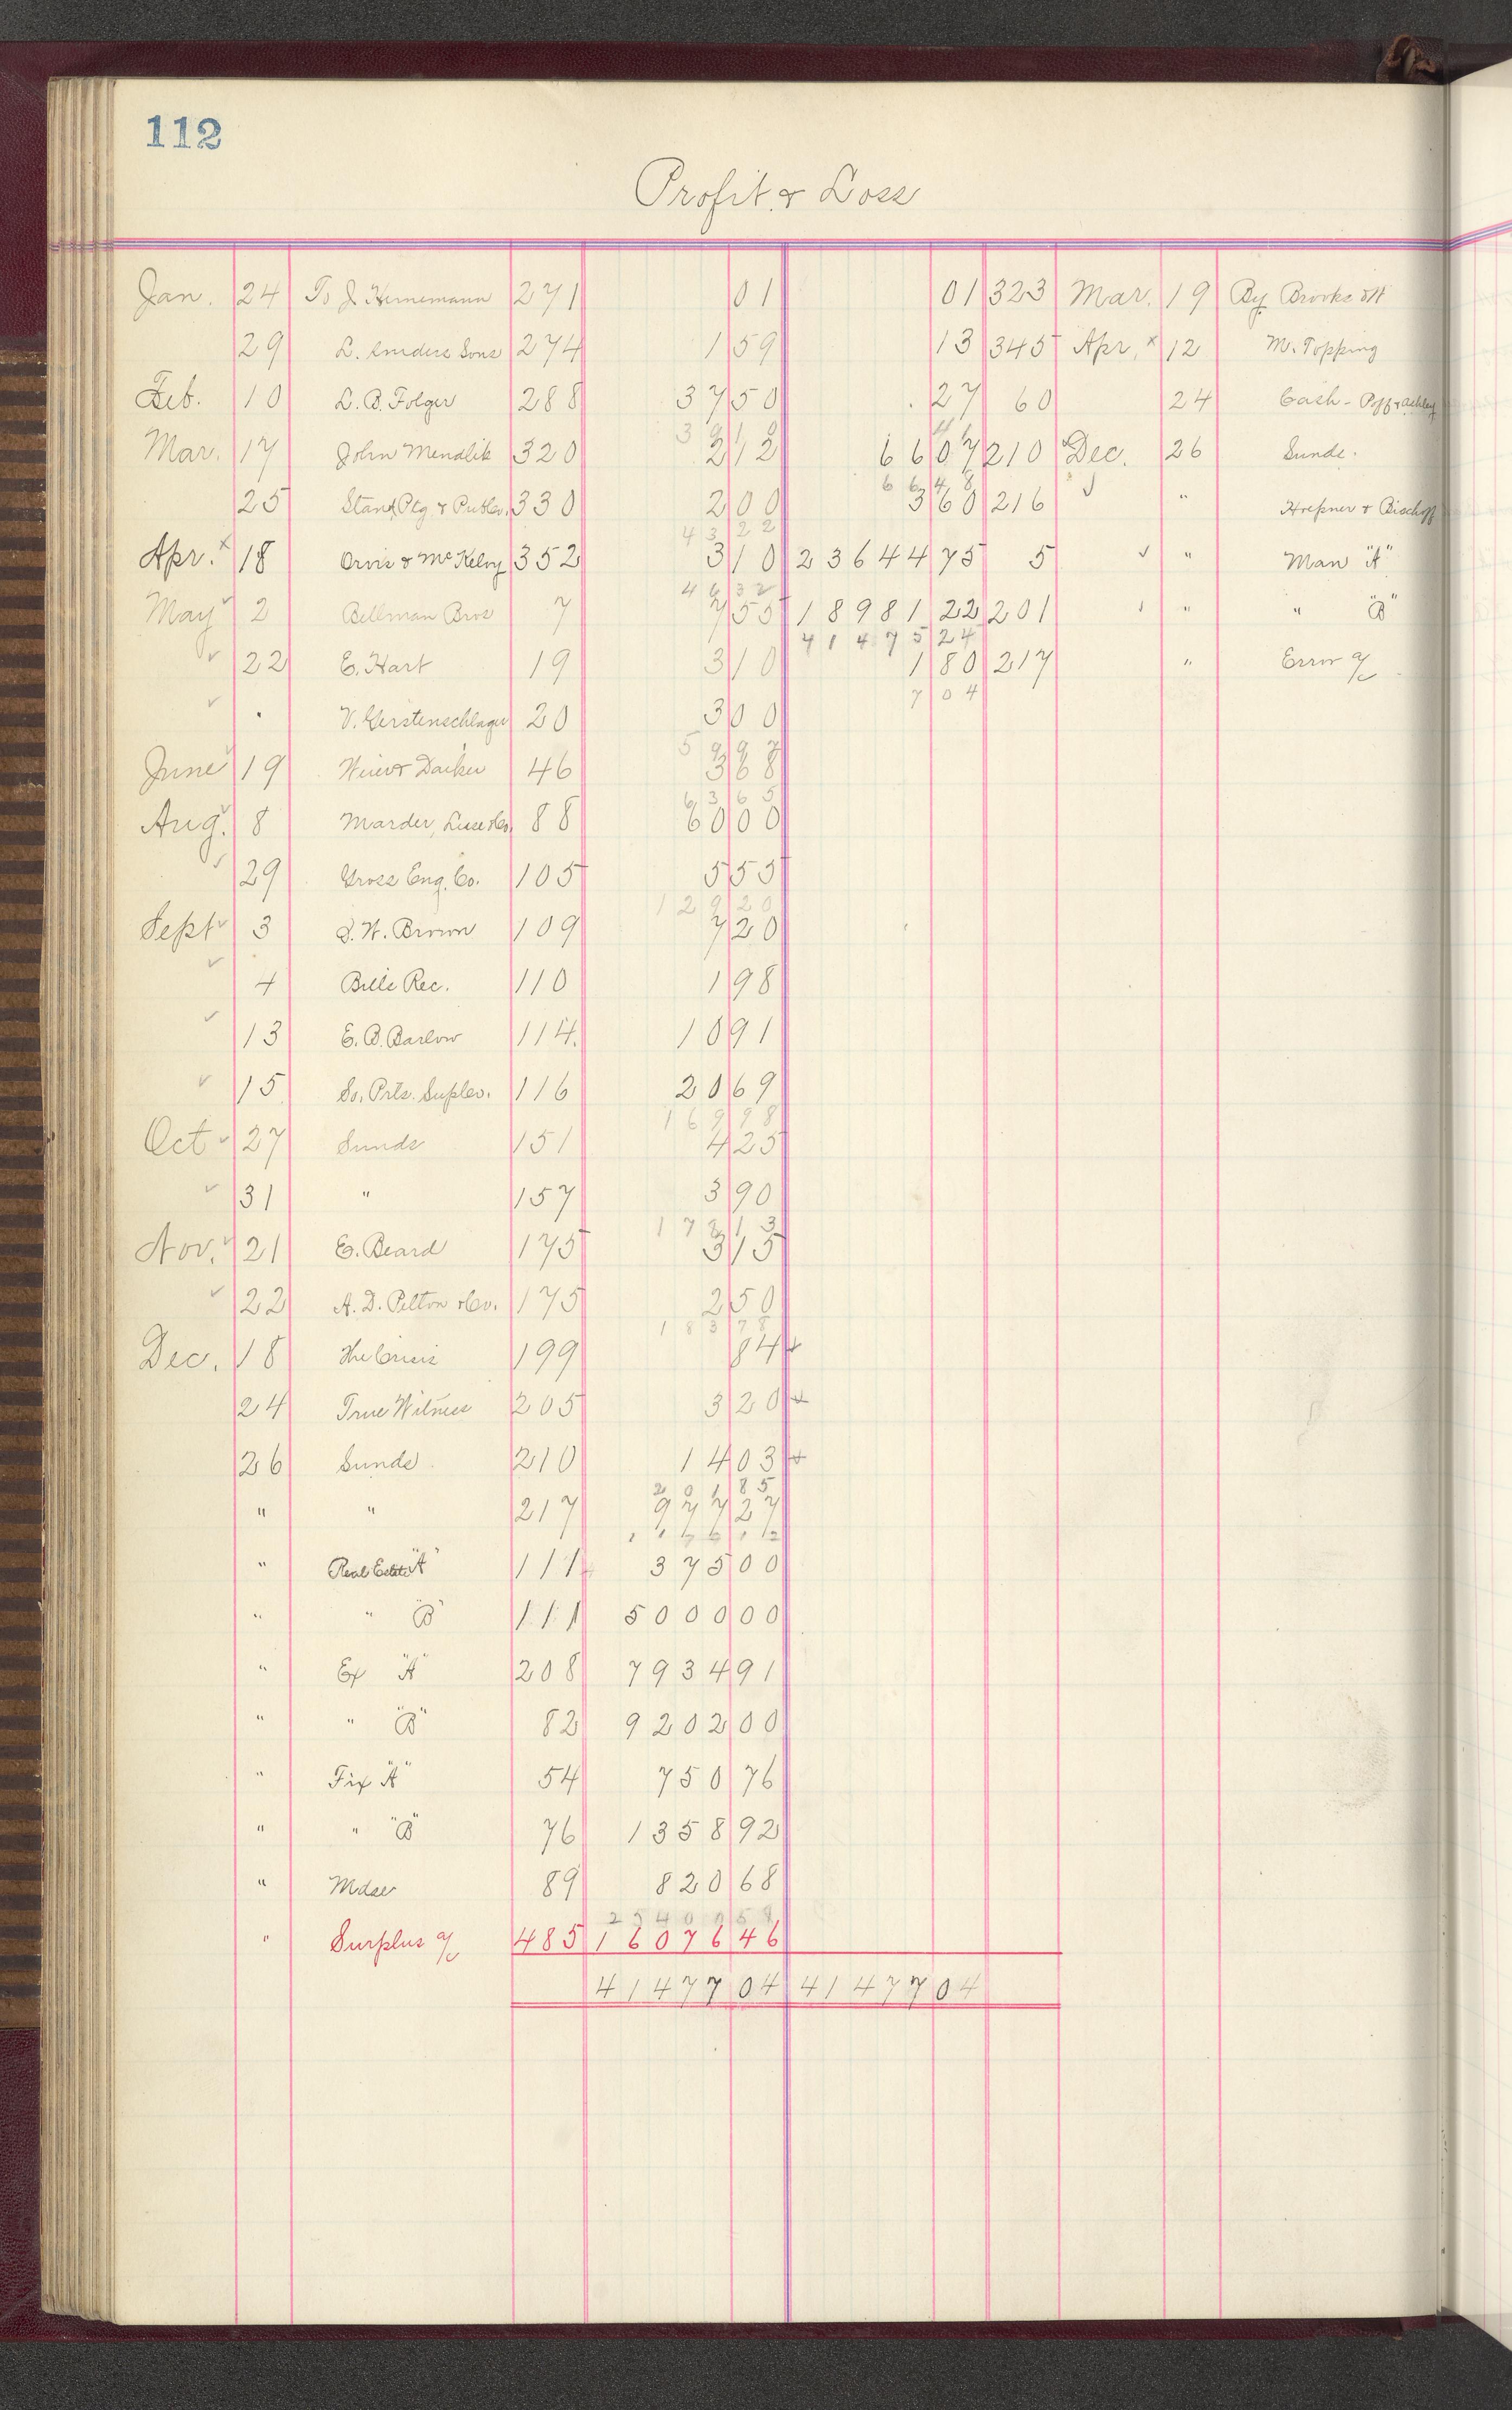 112
Profit & Loss
Jan. 24 To J. Hennemann 271 01 01 323 Mar. 19 By Brooks & H
29 L. Sniders Sons 274 1 59 13 345 Apr. x 12 M. Topping
Feb. 10 L. B. Folger 288 37 50 . 27 60 24 Cash - Poff & Ashley
39 10 41
Mar. 17 John Mendlik 320 2 12 66 07 210 Dec. 26 Sunds.
66 48
25 Stand. Ptg & Pub Co. 330 2 00 3 60 216 ✓ " Hoefner & Bischoff
43 22
Apr. x 18 Orvis & McKelvy 352 3 10 23644 75 5 ✓ " Man "A"
46 32
May ✓ 2 Bellman Bros 7 7 55 18981 22 201 ✓ " " "B"
41475 24
✓ 22 E. Hart 19 3 10 1 80 217 " Error a/c
7 04
✓ " V. Gerstenschlager 20 3 00
59 97
June ✓ 19 Weier & Daiker 46 3 68
63 65
Aug. ✓ 8 Marder, Luse & Co. 88 60 00
✓ 29 Gross Eng. Co. 105 5 55
129 20
Sept ✓ 3 S. W. Brown 109 7 20
✓ 4 Bills Rec. 110 1 98
✓ 13 E. B. Barlow 114. 10 91
✓ 15 So. Prts. Sup. Co. 116 20 69
169 98
Oct ✓ 27 Sunds 151 4 25
✓ 31 " 157 3 90
178 13
Nov. ✓ 21 E. Beard 175 3 15
✓ 22 A. D. Pelton & Co. 175 2 50
183 78
Dec. 18 The Crisis 199 84 +
24 True Witness 205 3 20 +
26 Sunds 210 14 03 +
201 85
" " 217 977 27
" Real Estate "A" 111 375 00
" " "B" 111 5000 00
" Ex "A" 208 7934 91
" " "B" 82 9202 00
" Fix "A" 54 750 76
" " "B" 76 1358 92
" Mdse 89 820 68
25400 58
" Surplus a/c 485 16076 46
41477 04 41477 04